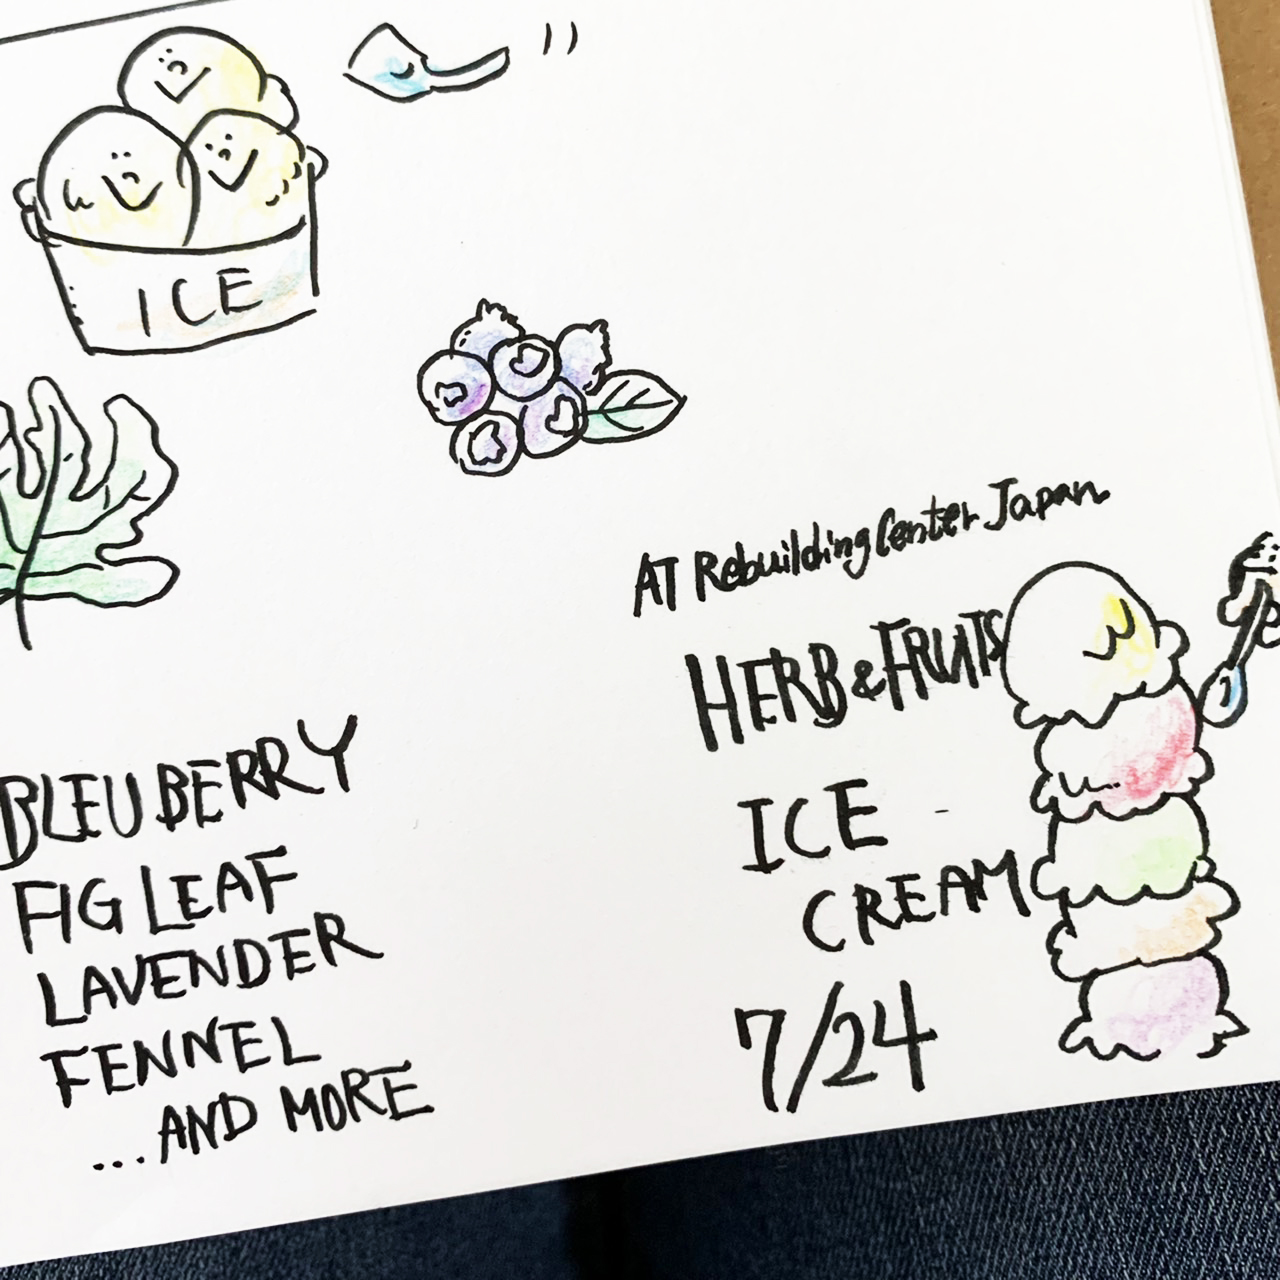 ICE
BLEUBERRY
FIG LEAF
LAVENDER
FENNEL
...AND MORE
AT Rebuilding Center Japan
HERB & FRUITS
ICE
CREAM
7/24